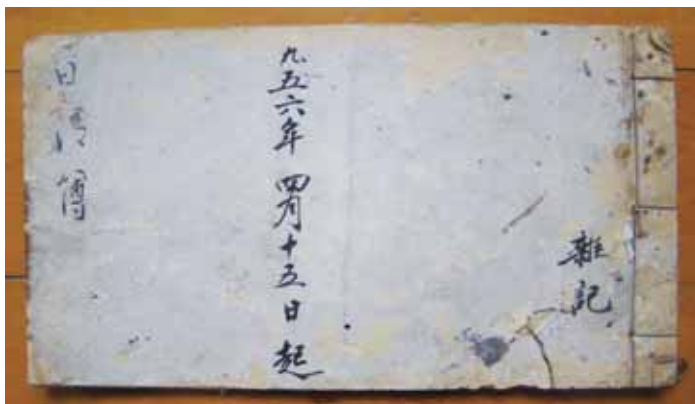 雜記
九五六年四月十五日起
日清簿